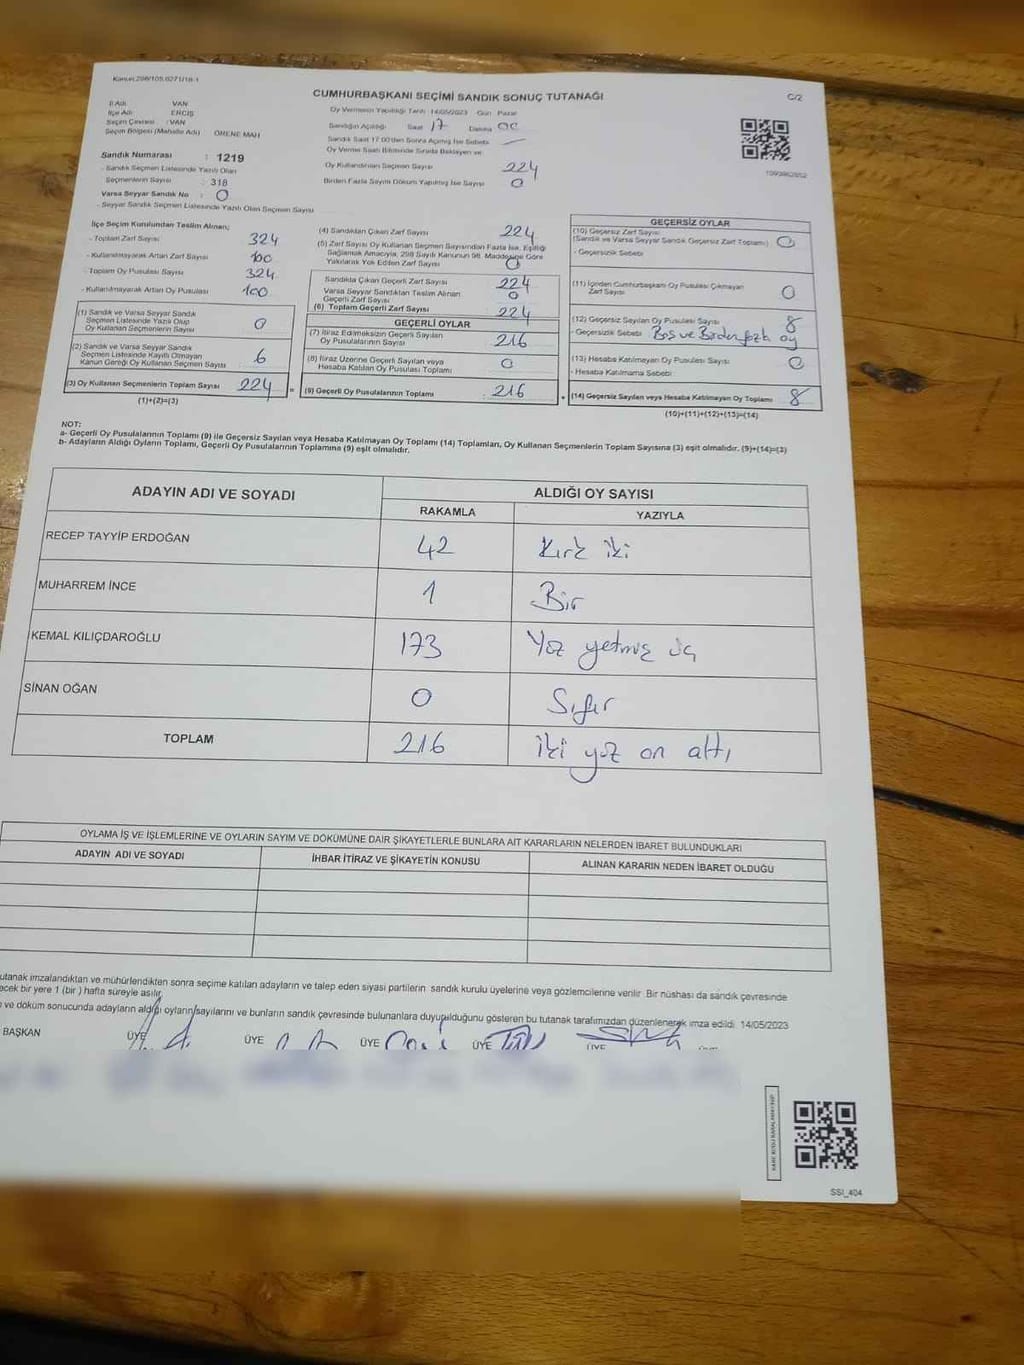 Kanun 298/105.0271/18-1
CUMHURBAŞKANI SEÇİMİ SANDIK SONUÇ TUTANAĞI
C/2
İl Adı VAN
İlçe Adı ERCİŞ
Seçim Çevresi VAN
Seçim Bölgesi (Mahalle Adı) ÖRENE MAH
Sandık Numarası : 1219
- Sandık Seçmen Listesinde Yazılı Olan
Seçmenlerin Sayısı : 318
Varsa Seyyar Sandık No : 0
- Seyyar Sandık Seçmen Listesinde Yazılı Olan Seçmen Sayısı
Oy Vermenin Yapıldığı Tarih 14/05/2023 Gün Pazar
Sandığın Açıldığı Saat 17 Dakika 00
Sandık Saat 17.00'den Sonra Açılmış İse Sebebi
Oy Verme Saati Bitiminde Sırada Bekleyen ve
Oy Kullandırılan Seçmen Sayısı 224
Birden Fazla Sayım Döküm Yapılmış İse Sayısı 0
1093962852
İlçe Seçim Kurulundan Teslim Alınan;
- Toplam Zarf Sayısı 324
- Kullanılmayarak Artan Zarf Sayısı 100
- Toplam Oy Pusulası Sayısı 324
- Kullanılmayarak Artan Oy Pusulası 100
(1) Sandık ve Varsa Seyyar Sandık
Seçmen Listesinde Yazılı Olup
Oy Kullanan Seçmenlerin Sayısı 0
(2) Sandık ve Varsa Seyyar Sandık
Seçmen Listesinde Kayıtlı Olmayan
Kanun Gereği Oy Kullanan Seçmen Sayısı 6
(3) Oy Kullanan Seçmenlerin Toplam Sayısı 224 =
(1)+(2)=(3)
(4) Sandıktan Çıkan Zarf Sayısı 224
(5) Zarf Sayısı Oy Kullanan Seçmen Sayısından Fazla İse, Eşitliği
Sağlamak Amacıyla, 298 Sayılı Kanunun 98. Maddesine Göre
Yakılarak Yok Edilen Zarf Sayısı 0
Sandıkta Çıkan Geçerli Zarf Sayısı 224
Varsa Seyyar Sandıktan Teslim Alınan
Geçerli Zarf Sayısı 0
(6) Toplam Geçerli Zarf Sayısı 224
GEÇERLİ OYLAR
(7) İtiraz Edilmeksizin Geçerli Sayılan
Oy Pusulalarının Sayısı 216
(8) İtiraz Üzerine Geçerli Sayılan veya
Hesaba Katılan Oy Pusulası Toplamı 0
(9) Geçerli Oy Pusulalarının Toplamı : 216 +
GEÇERSİZ OYLAR
(10) Geçersiz Zarf Sayısı
(Sandık ve Varsa Seyyar Sandık Geçersiz Zarf Toplamı) 0
- Geçersizlik Sebebi
(11) İçinden Cumhurbaşkanı Oy Pusulası Çıkmayan
Zarf Sayısı 0
(12) Geçersiz Sayılan Oy Pusulası Sayısı 8
- Geçersizlik Sebebi Boş ve Birden fazla oy
(13) Hesaba Katılmayan Oy Pusulası Sayısı 0
- Hesaba Katılmama Sebebi
(14) Geçersiz Sayılan veya Hesaba Katılmayan Oy Toplamı 8
(10)+(11)+(12)+(13)=(14)
NOT:
a- Geçerli Oy Pusulalarının Toplamı (9) ile Geçersiz Sayılan veya Hesaba Katılmayan Oy Toplamı (14) Toplamları, Oy Kullanan Seçmenlerin Toplam Sayısına (3) eşit olmalıdır. (9)+(14)=(3)
b- Adayların Aldığı Oyların Toplamı, Geçerli Oy Pusulalarının Toplamına (9) eşit olmalıdır.
ADAYIN ADI VE SOYADI ALDIĞI OY SAYISI
RAKAMLA YAZIYLA
RECEP TAYYİP ERDOĞAN 42 Kırk iki
MUHARREM İNCE 1 Bir
KEMAL KILIÇDAROĞLU 173 Yüz yetmiş üç
SİNAN OĞAN 0 Sıfır
TOPLAM 216 iki yüz on altı
OYLAMA İŞ VE İŞLEMLERİNE VE OYLARIN SAYIM VE DÖKÜMÜNE DAİR ŞİKAYETLERLE BUNLARA AİT KARARLARIN NELERDEN İBARET BULUNDUKLARI
ADAYIN ADI VE SOYADI İHBAR İTİRAZ VE ŞİKAYETİN KONUSU ALINAN KARARIN NEDEN İBARET OLDUĞU
utanak imzalandıktan ve mühürlendikten sonra seçime katılan adayların ve talep eden siyasi partilerin sandık kurulu üyelerine veya gözlemcilerine verilir. Bir nüshası da sandık çevresinde
ecek bir yere 1 (bir ) hafta süreyle asılır.
ve döküm sonucunda adayların aldığı oyların sayılarını ve bunların sandık çevresinde bulunanlara duyurulduğunu gösteren bu tutanak tarafımızdan düzenlenerek imza edildi. 14/05/2023
BAŞKAN ÜYE ÜYE ÜYE ÜYE ÜYE
SSI_404